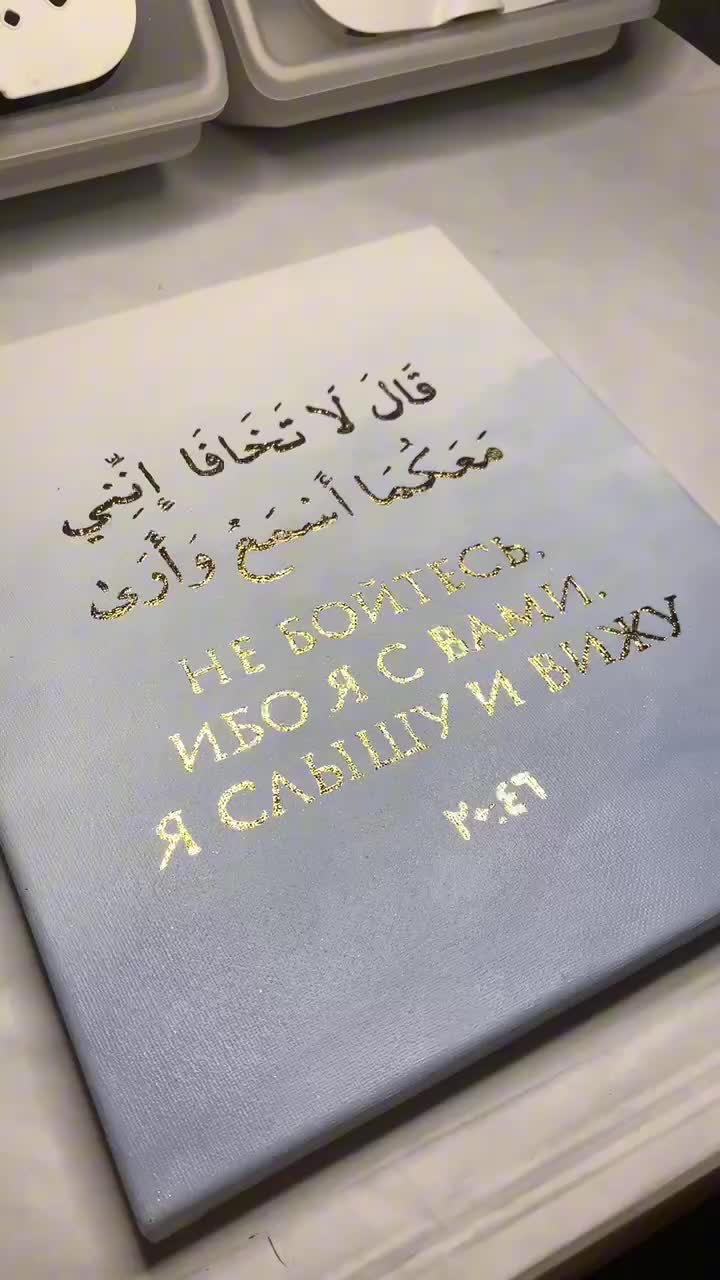 قَالَ لَا تَخَافَا إِنَّنِي
مَعَكُمَا أَسْمَعُ وَأَرَىٰ
НЕ БОЙТЕСЬ,
ИБО Я С ВАМИ.
Я СЛЫШУ И ВИЖУ
٢٠:٤٦